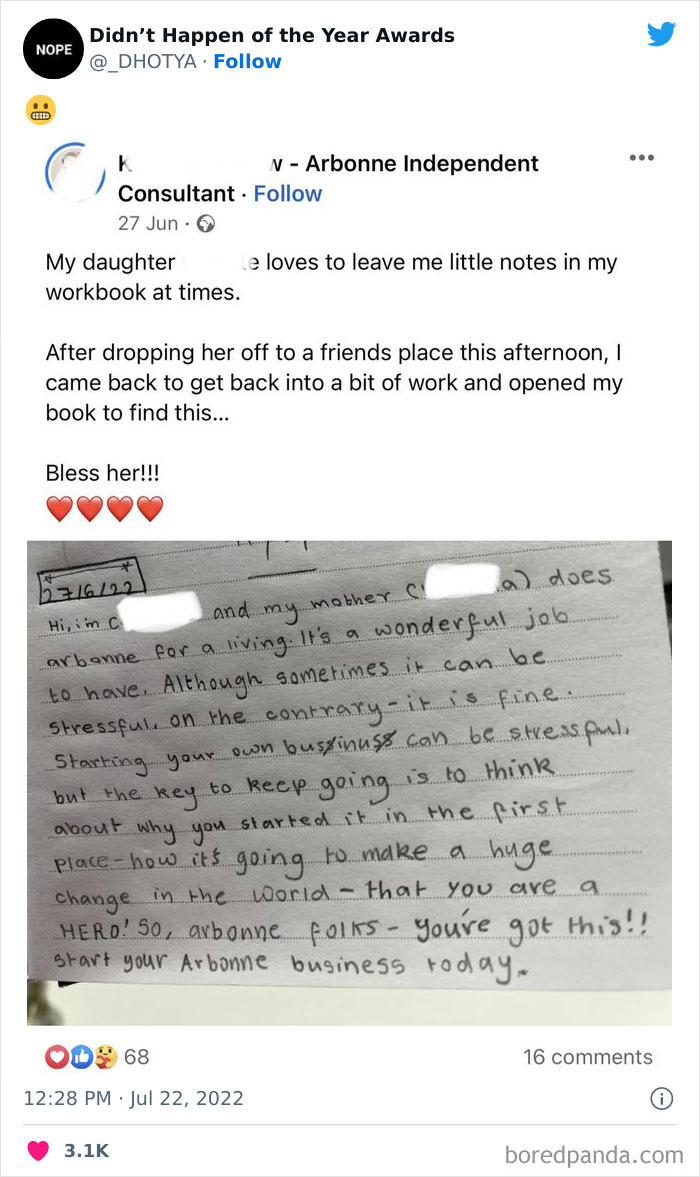 NOPE
Didn't Happen of the Year Awards
@_DHOTYA · Follow
K w - Arbonne Independent
Consultant · Follow
27 Jun ·
My daughter e loves to leave me little notes in my
workbook at times.
After dropping her off to a friends place this afternoon, I
came back to get back into a bit of work and opened my
book to find this...
Bless her!!!
27/6/22
Hi, i'm C and my mother (C a) does
arbonne for a living. It's a wonderful job
to have. Although sometimes it can be
stressful, on the contrary - it is fine.
Starting your own bussinuss can be stressful,
but the key to keep going is to think
about why you started it in the first
place - how it's going to make a huge
change in the world - that you are a
HERO! So, arbonne folks - you're got this!!
Start your Arbonne business today.
68
16 comments
12:28 PM · Jul 22, 2022
3.1K
boredpanda.com